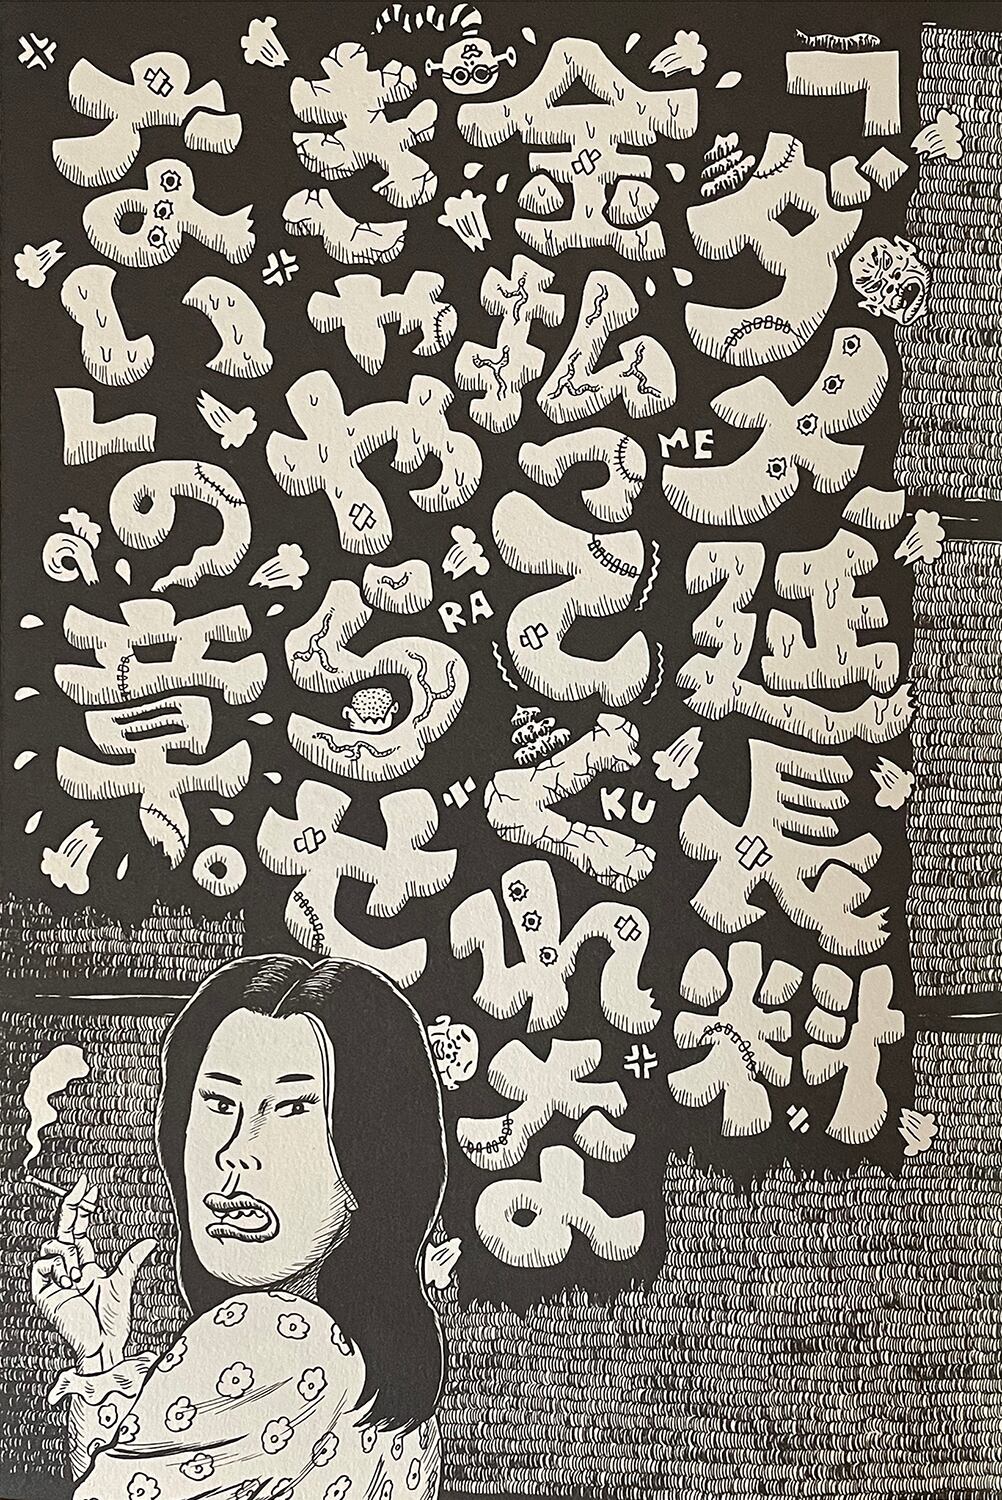 「ダメ延長料
金払ってくれな
きゃやらせ
ない」の章。
ME
RA
KU